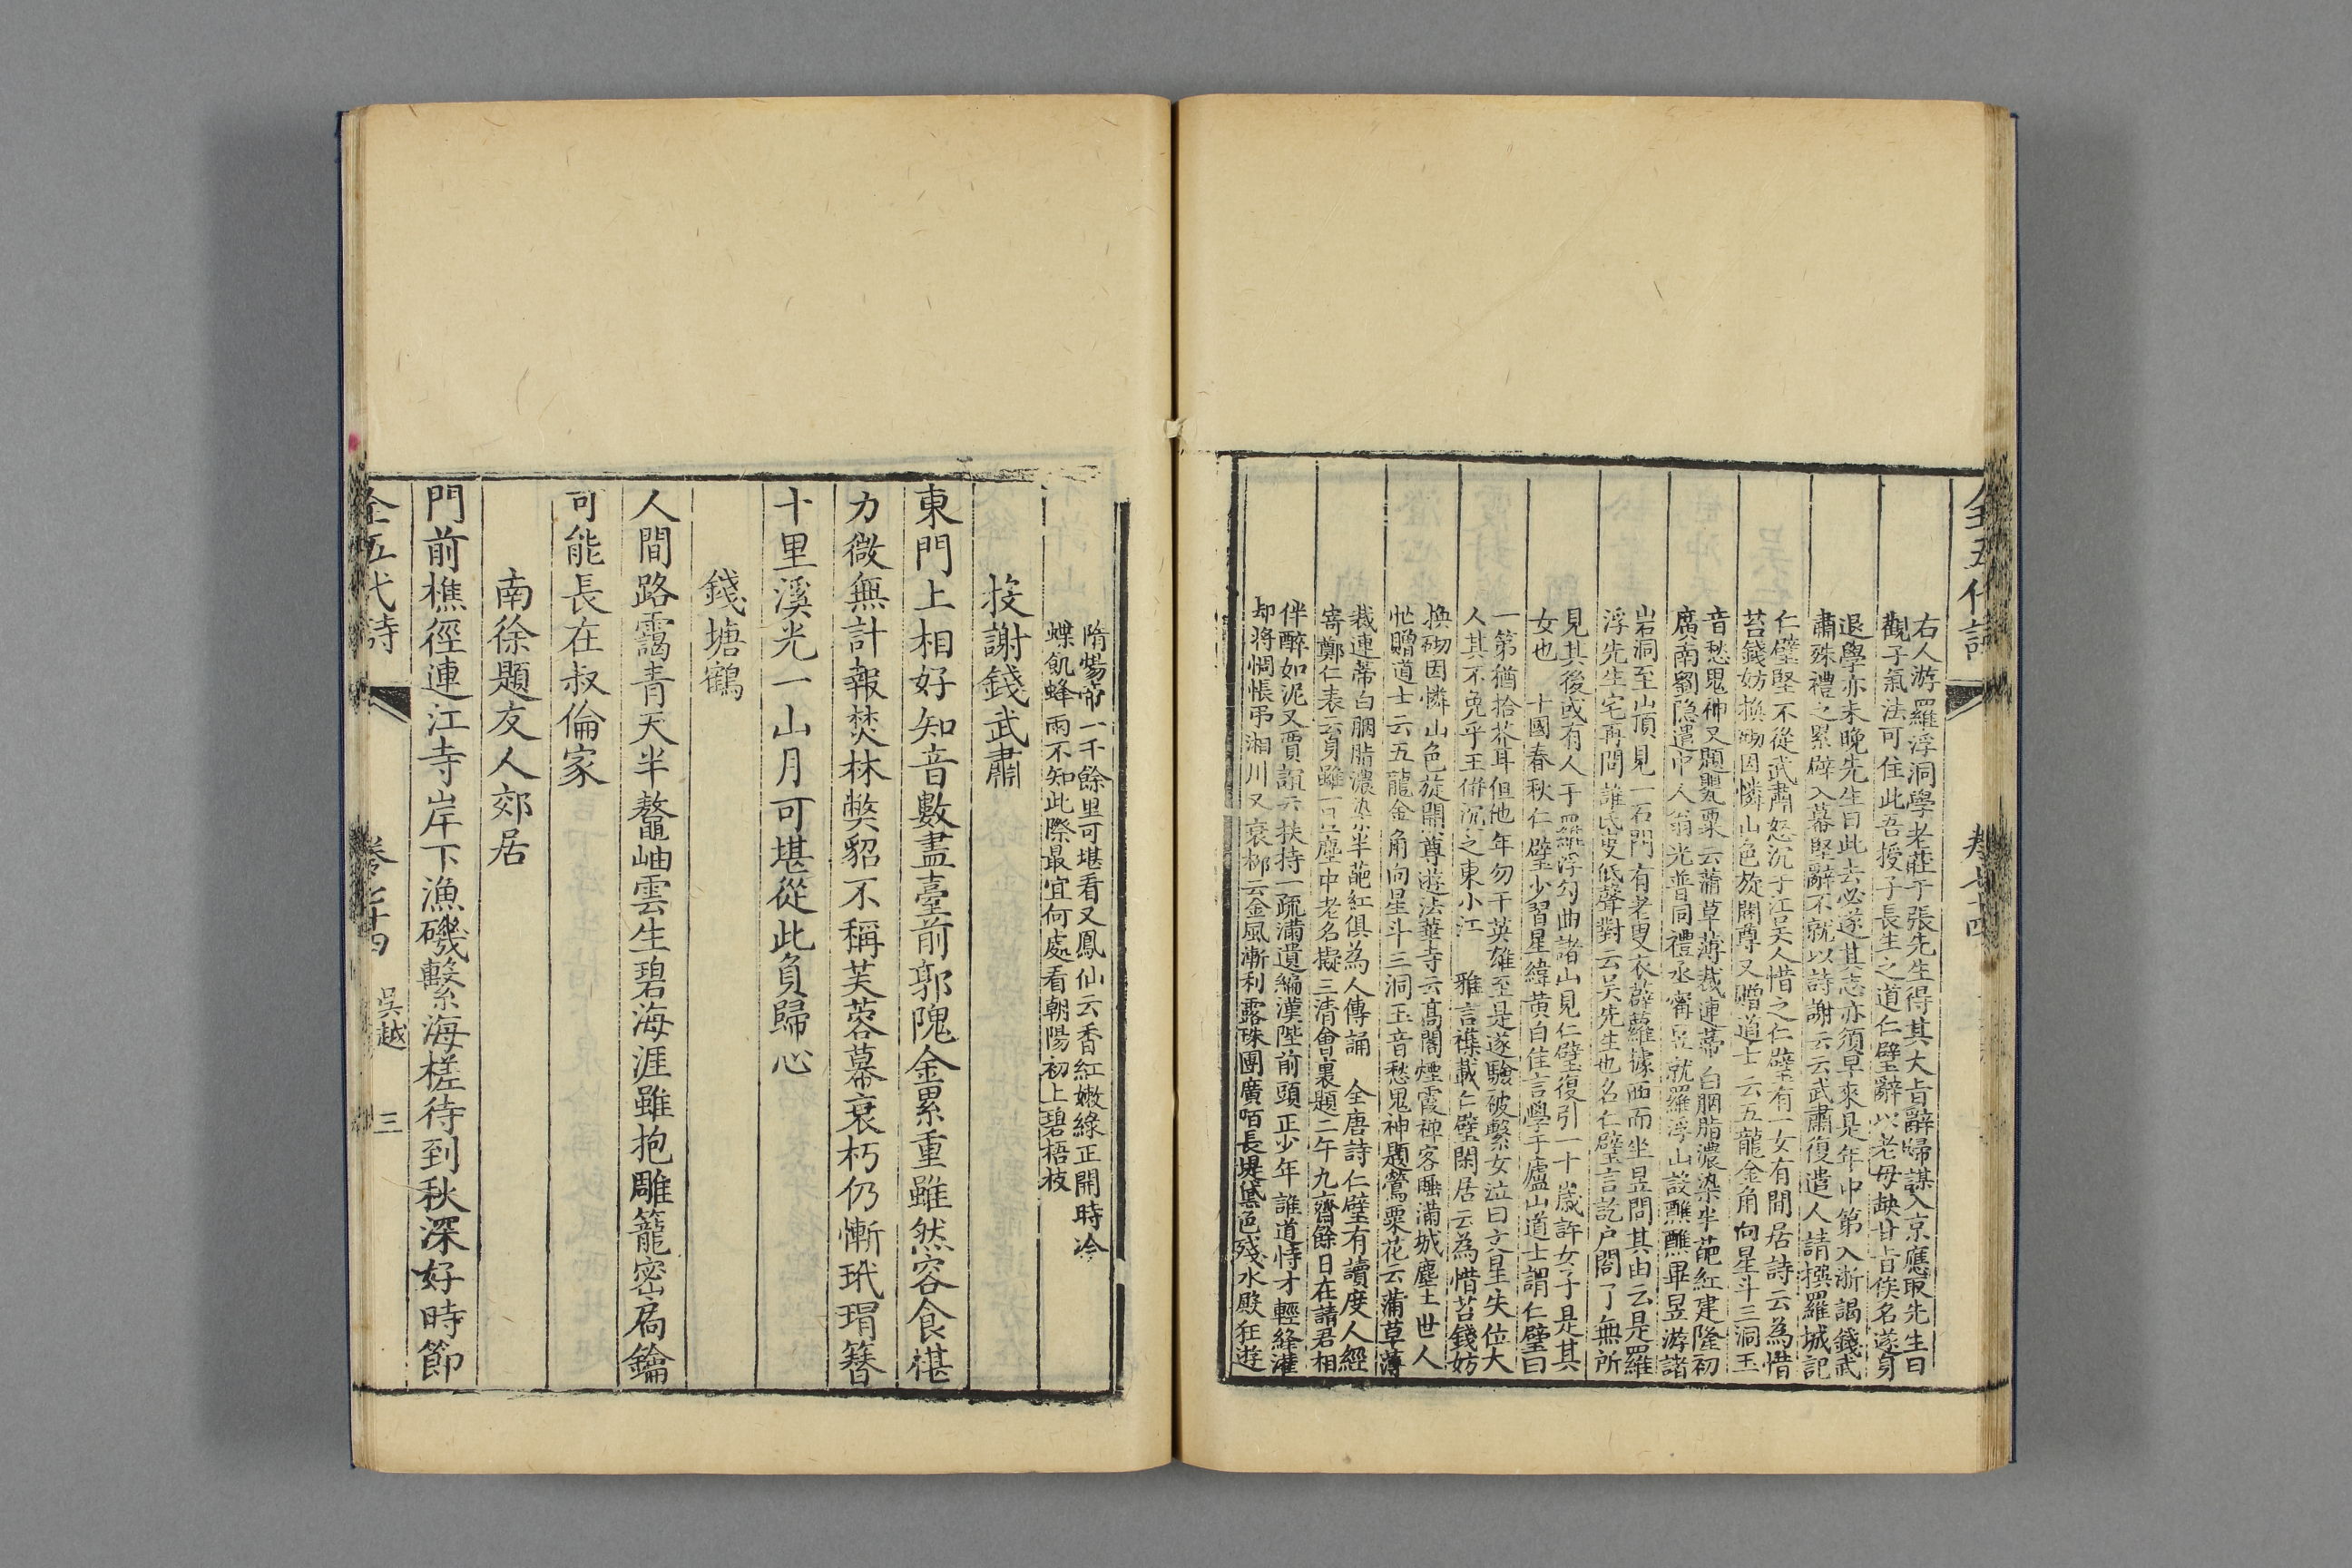 右人游羅浮洞學老莊于張先生得其大旨辭歸謀入京應取先生曰
觀子氣法可住此吾授子長生之道仁璧辭以老母缺甘旨俟名遂身
退學亦未晚先生曰此去必遂其志亦須早來是年中第入浙謁錢武
肅殊禮之累辟入幕堅辭不就以詩謝云云武肅復遣人請撰羅城記
仁璧堅不從武肅怒沉于江吴人惜之仁璧有一女有閒居詩云為惜
苔錢妨換砌因憐山色旋開尊又贈道士云五龍金角向星斗三洞玉
音愁鬼神又題罌粟云蒲草薄裁連蒂白胭脂濃染半葩紅建隆初
廣南劉隐遣中人翁光普同禮丞甯昱就羅浮山設醮醮畢昱游諸
岩洞至山頂見一石門有老叟衣薜蘿據西而坐昱問其由云是羅
浮先生宅再問誰氏叟低聲對云吴先生也名仁璧言訖户閤了無所
見其後或有人于羅浮勾曲諸山見仁璧復引一十歲許女子是其
女也 十國春秋仁璧少習星緯黄白佳言學于廬山道士謂仁璧曰
一第猶拾芥耳但他年勿干英雄至是遂驗被繫女泣曰文星失位大
人其不免乎王併沉之東小江 雅言襍載仁璧閑居云為惜苔錢妨
換砌因憐山色旋開尊遊法華寺云高閣煙霞禪客睡滿城塵土世人
忙贈道士云五龍金角向星斗三洞玉音愁鬼神題鶯粟花云蒲草薄
裁連蒂白胭脂濃染半葩紅俱為人傳誦 全唐詩仁璧有讀度人經
寄鄭仁表云身雖一旦塵中老名擬三清會裏題二午九齋餘日在請君相
伴醉如泥又賈誼云扶持一疏滿遺編漢陛前頭正少年誰道恃才輕絳灌
却将惆悵弔湘川又衰柳云金風漸利露珠團廣陌長堤黛色殘水殿狂遊
隋煬帝一千餘里可堪看又鳳仙云香紅嫩綠正開時冷
蝶飢蜂兩不知此際最宜何處看朝陽初上碧梧枝
投謝錢武肅
東門上相好知音數盡臺前郭隗金累重雖然容食椹
力微無計報焚林弊貂不稱芙蓉幕衰朽仍慚玳瑁簪
十里溪光一山月可堪從此負歸心
錢塘鶴
人間路靄青天半鼇岫雲生碧海涯雖抱雕籠密扃鑰
可能長在叔倫家
南徐題友人郊居
門前樵徑連江寺岸下漁磯繫海槎待到秋深好時節
全五代詩 卷七十四 吳越 三